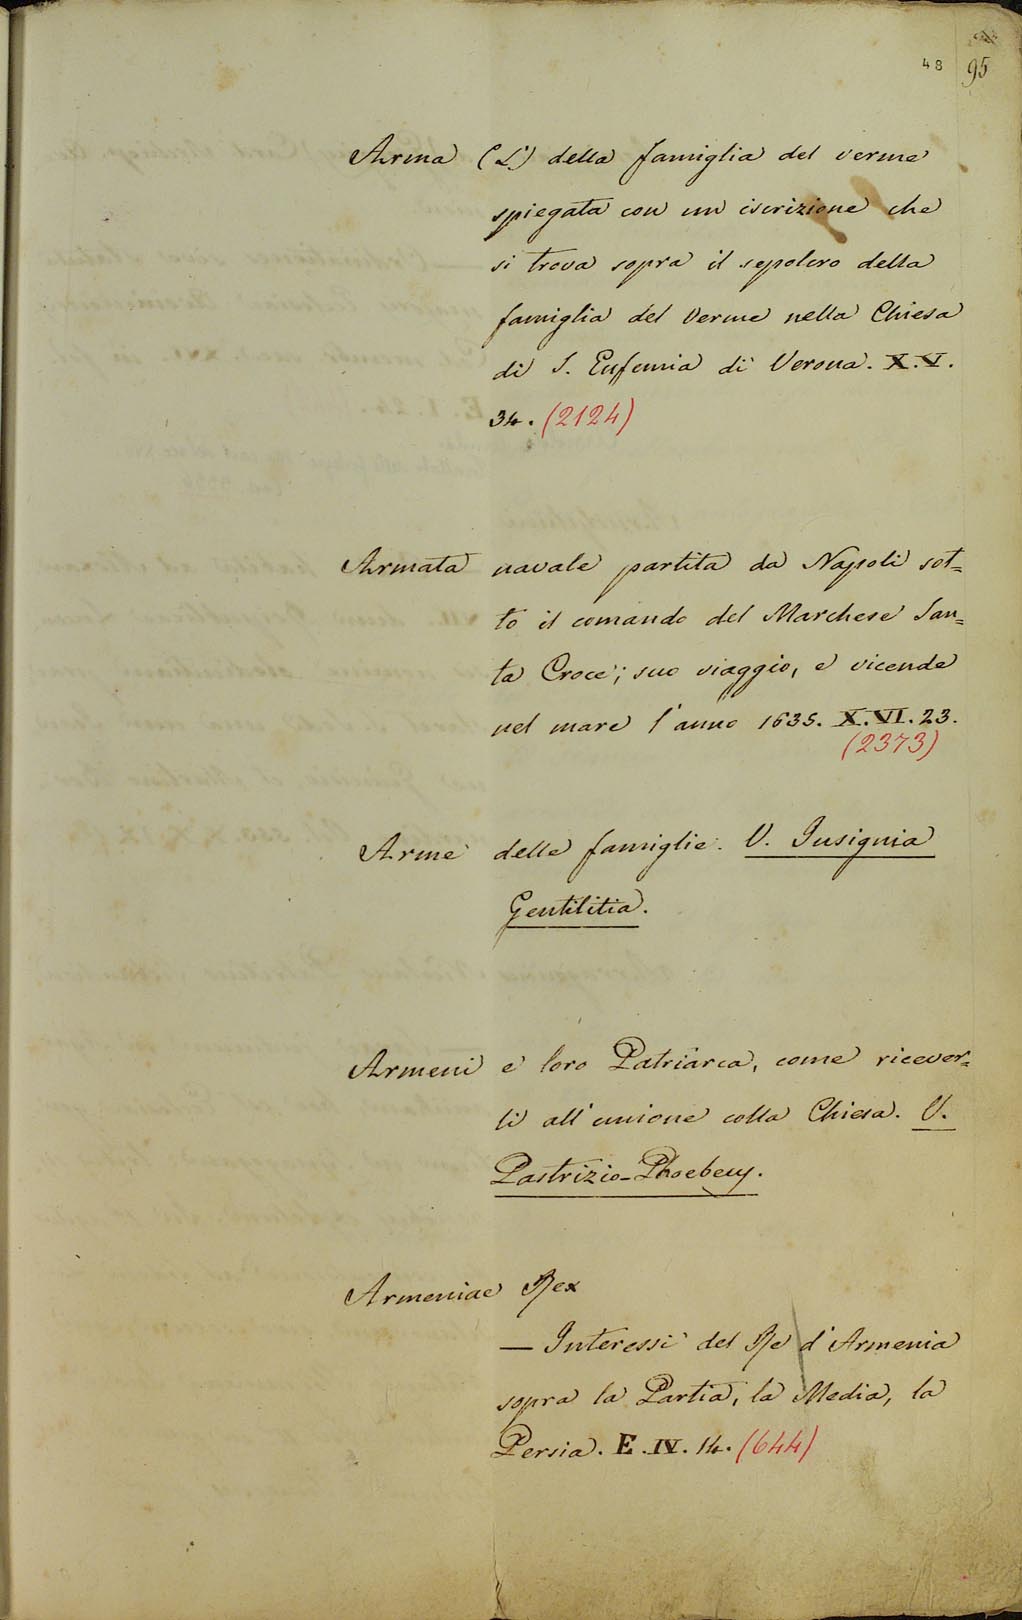 48 95
Arma (L') della famiglia del verme
spiegata con un iscrizione che
si trova sopra il sepolcro della
famiglia del Verme nella Chiesa
di S. Eufemia di Verona. X.V.
34. (2124)
Armata navale partita da Napoli sot=
to il comando del Marchese San=
ta Croce; suo viaggio, e vicende
nel mare l'anno 1635. X.VI.23.
(2373)
Arme delle famiglie. V. Insignia
Gentilitia.
Armeni e loro Patriarca, come ricever=
li all'unione colla Chiesa. V.
Pastrizio-Phoebeus.
Armeniae Rex
— Interessi del Re d'Armenia
sopra la Partia, la Media, la
Persia. E.IV.14. (644)